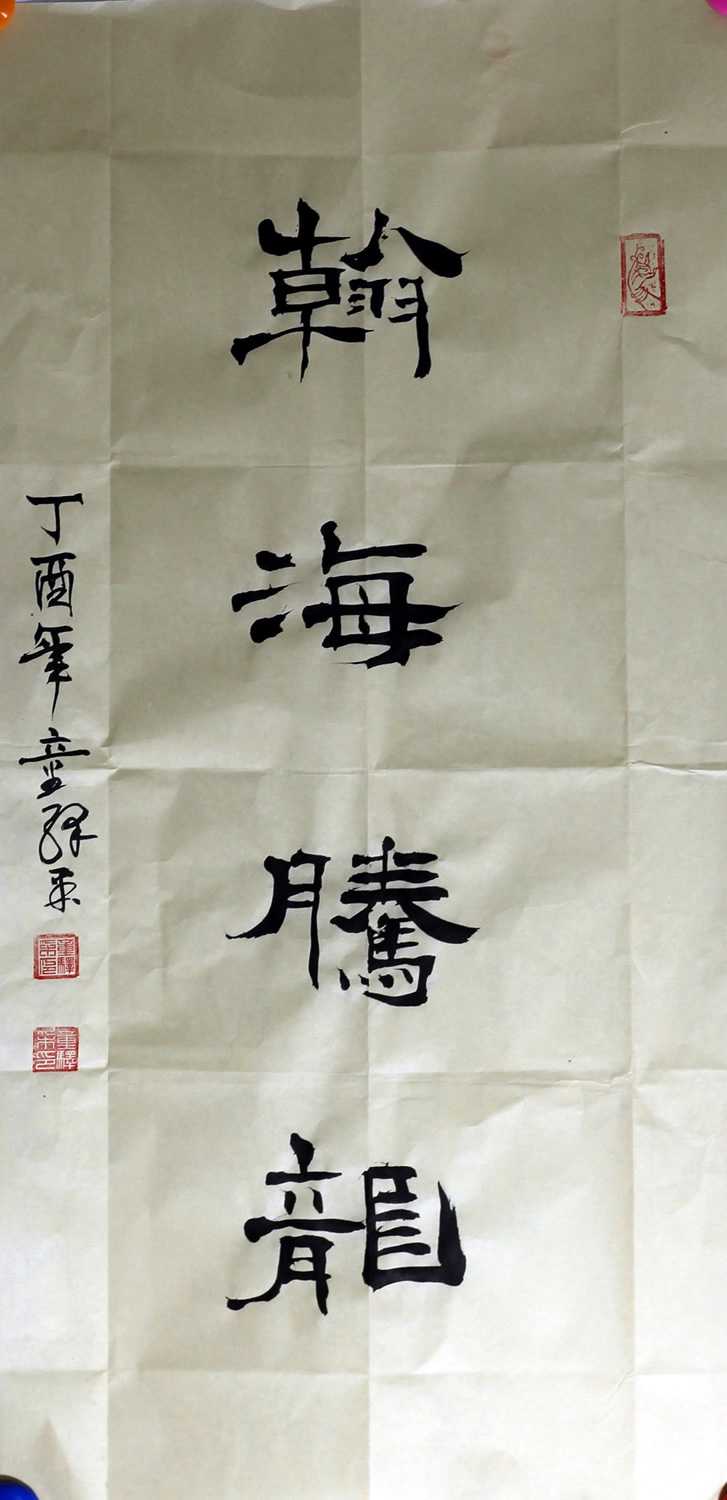 翰海騰龍
丁酉年童驛平